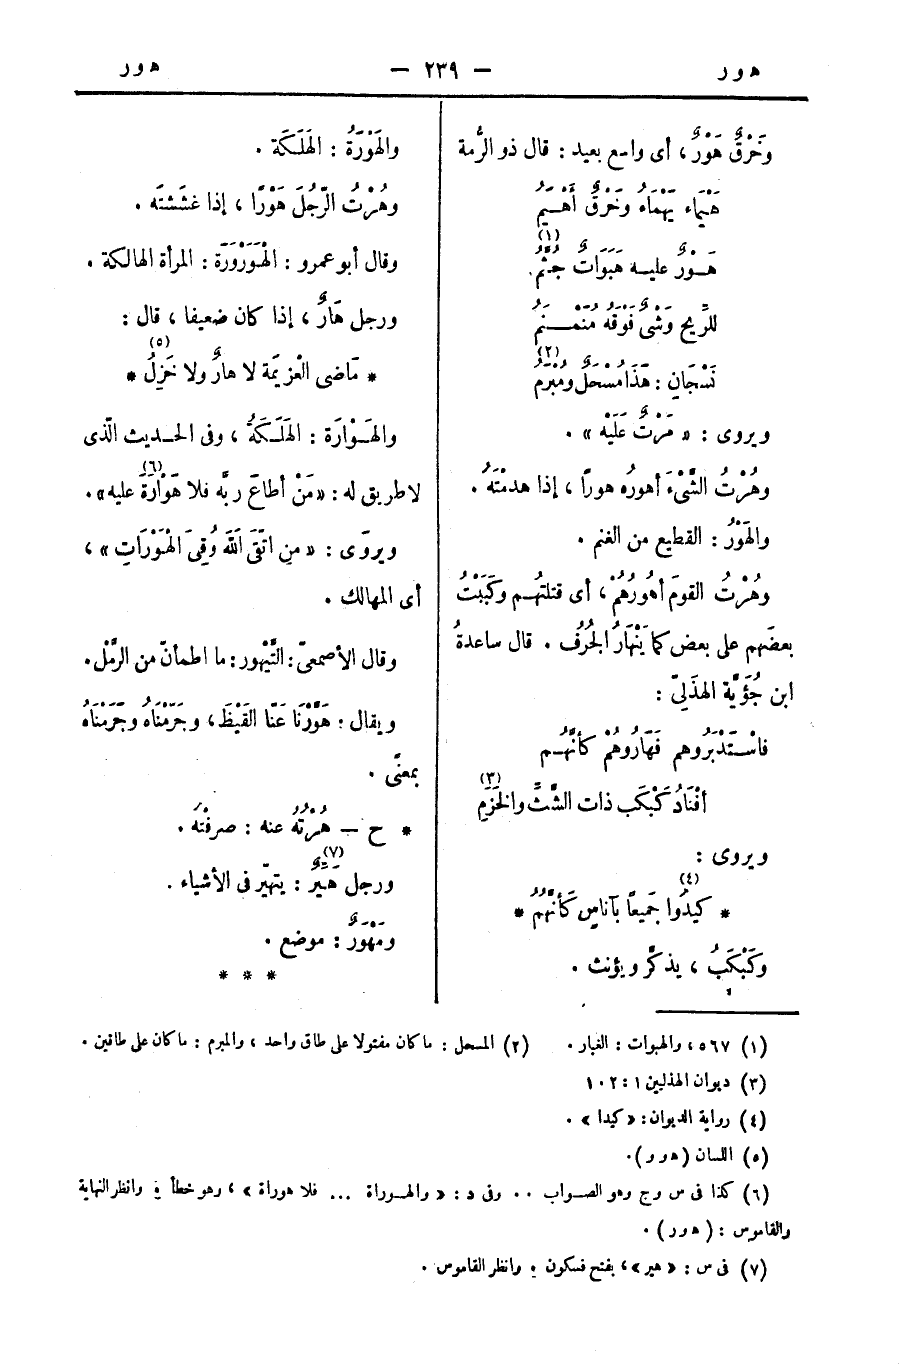 هور — ٢٣٩ — هور
وَخَرْقٌ هَوْرٌ ، أى واسع بعيد : قال ذو الرّمة
هَيْمَاءُ يَهْمَاءُ وخَرْقٌ أَهْيَمُ
هَــوْرٌ عليــه هَبَوَاتٌ جُثَّمُ (١)
للرِّيحِ وَشْىٌ فَوْقَهُ مُنَمْنَــمُ
نَسْجَانِ : هَذَا مُسْحَلٌ ومُبْرَمُ (٢)
ويروى : « مَرَّتْ عَلَيْهِ » .
وهُرْتُ الشَّىْءَ أهورُه هورًا ، إذا هدمْتَهُ .
والهَوْرُ : القطيع من الغنم .
وهُرْتُ القومَ أهُورُهُمْ ، أى قتلتهُــم وكَبَبْتُ
بعضَهم على بعض كما يَنْهَارُ الجُرُفُ . قال ساعدةُ
ابن جُؤَيَّة الهذَلىّ :
فاسْــتَدْبَرُوهم فَهَارُوهُمْ كأنَّهُــم
أفْنَادُ كَبْكَب ذات الشَّثِّ والخَزَمِ (٣)
ويروى :
* كيدُوا جَميعاً بآناسٍ كَأنَّهُمُ * (٤)
وكَبْكَبُ ، يذكَّر ويؤنث .
والهَوْرَةُ : الهَلَكَة .
وهُرْتُ الرَّجُلَ هَوْرًا ، إذا غششتَه .
وقال أبو عمرو : الهَوَرْوَرَة : المرأة الهالكة .
ورجل هَارٌ ، إذا كان ضعيفا ، قال :
* مَاضى العَزِيمَة لا هارٌ ولا خَزِلُ * (٥)
والهَــوْارَة : الهَلَــكَةُ ، وفى الحــديث الّذى
لا طريق له : «مَنْ أطاعَ ربَّه فلا هَوْارَةَ عليه» . (٦)
ويروَى : « مَنِ اتَّقَى اللهَ وُقِىَ الْهَوْرَاتِ » ،
أى المهالك .
وقال الأصمعىّ : التَّيْهور : ما اطمأنّ من الرَّمْل .
ويقال : هَوَّرْنَا عَنَّا القَيْظَ ، وجَرَّمْنَاهُ وجَرَمْنَاهُ
بمعنًى .
* ح — هُرْتُهُ عنه : صرفْتَه .
ورجل هَيِّرٌ : يتهيَّر فى الأشياء . (٧)
ومَهْوَرٌ : موضع .
* * *
(١) ٥٦٧ ، والهبوات : الغبار . (٢) المسحل : ما كان مفتولا على طاق واحد ، والمبرم : ما كان على طاقين .
(٣) ديوان الهذليين ١ : ٢٠١
(٤) رواية الديوان : «كيدا» .
(٥) اللسان (هور) .
(٦) كذا فى س وج وهو الصــواب .. وفى د : « والهــوراة ... فلا هوراة » ، وهو خطأ ؛ وانظر النهاية
والقاموس : (هور) .
(٧) فى س : «هير» ، بفتح فسكون ؛ وانظر القاموس .